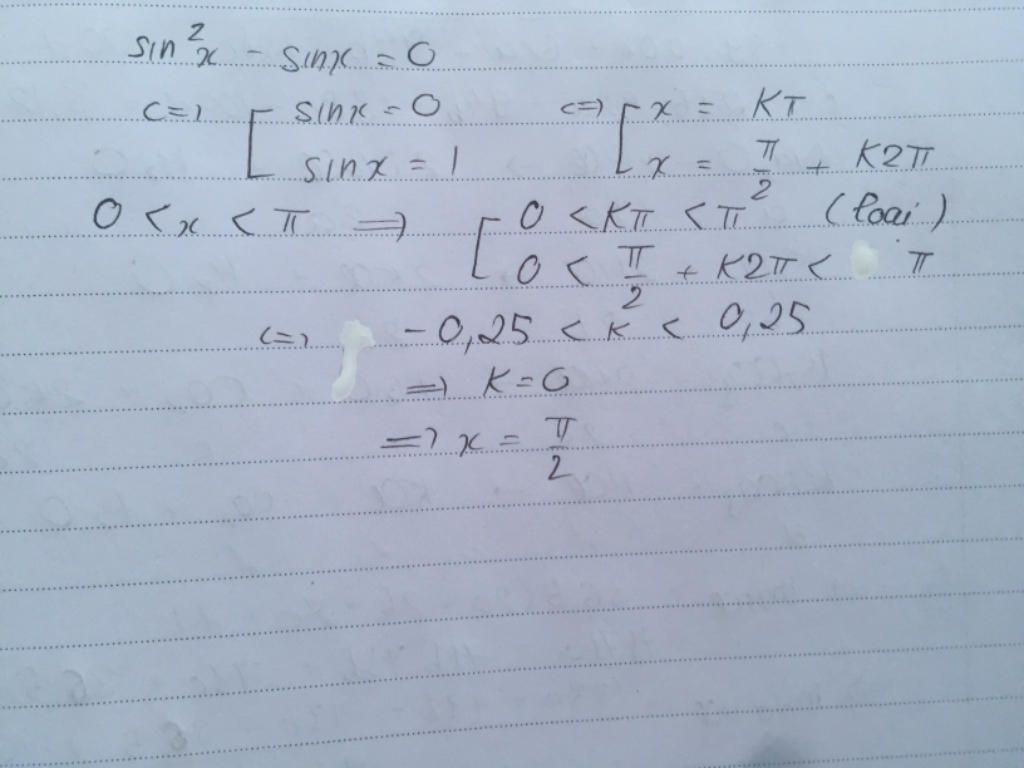 sin²x - sinx = 0
<=> [ sinx = 0 <=> [ x = Kπ
sinx = 1 x = π/2 + K2π
0 < x < π => [ 0 < Kπ < π (loai)
0 < π/2 + K2π < π
<=> -0,25 < K < 0,25
=> K = 0
=> x = π/2